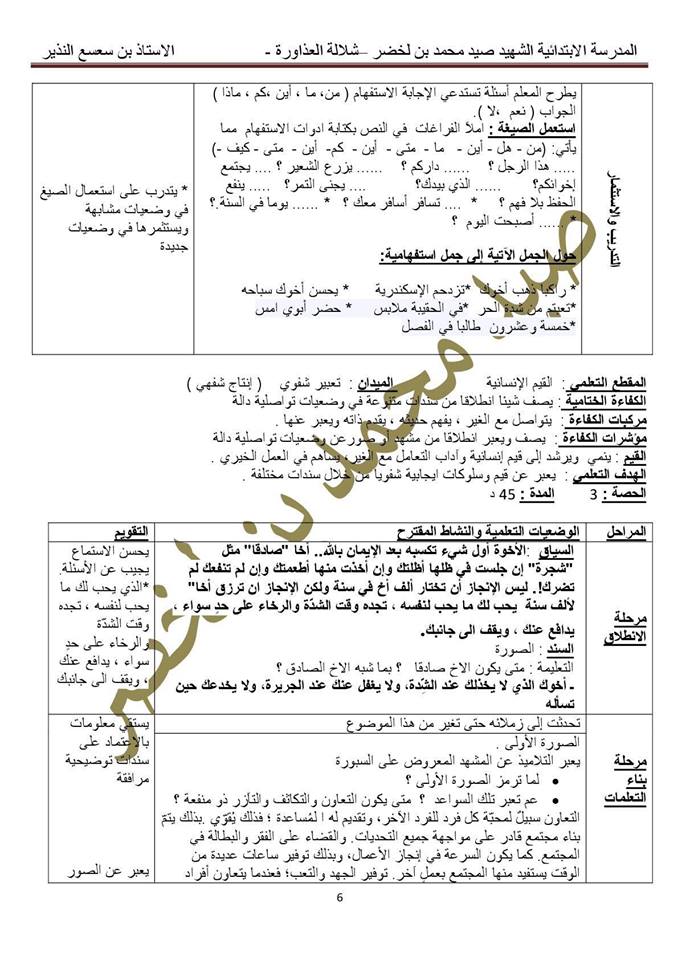 المدرسة الابتدائية الشهيد صيد محمد بن لخضر –شلالة العذاورة - الاستاذ بن سعسع النذير
التدريب والاستثمار
يطرح المعلم أسئلة تستدعي الإجابة الاستفهام ( من، ما ، أين ،كم ، ماذا )
الجواب ( نعم ،لا ).
استعمل الصيغة : املأ الفراغات في النص بكتابة ادوات الاستفهام مما
يأتي: (من - هل - أين - ما - متى - أين - كم- أين - متى - كيف -)
..... هذا الرجل ؟ ...... داركم ؟ ...... يزرع الشعير ؟ .... يجتمع
إخوانكم؟ ...... الذي بيدك؟ .... يجنى التمر؟ ..... ينفع
الحفظ بلا فهم ؟ * .... تسافر أسافر معك ؟ * ...... يوما في السنة.؟
* ...... أصبحت اليوم ؟
حول الجمل الآتية إلى جمل استفهامية:
* راكبا ذهب أخوك *تزدحم الإسكندرية * يحسن أخوك سباحه
*تعبتم من شدة الحر *في الحقيبة ملابس * حضر أبوي امس
*خمسة وعشرون طالبا في الفصل
* يتدرب على استعمال الصيغ
في وضعيات مشابهة
ويستثمرها في وضعيات
جديدة
المقطع التعلمي : القيم الإنسانية الميدان : تعبير شفوي ( إنتاج شفهي )
الكفاءة الختامية : يصف شيئا انطلاقا من سندات متنوعة في وضعيات تواصلية دالة
مركبات الكفاءة : يتواصل مع الغير ، يفهم حديثه ، يقدم ذاته ويعبر عنها .
مؤشرات الكفاءة : يصف ويعبر انطلاقا من مشهد أو صورعن وضعيات تواصلية دالة
القيم : ينمي ويرشد إلى قيم إنسانية وآداب التعامل مع الغير، يساهم في العمل الخيري .
الهدف التعلمي : يعبر عن قيم وسلوكات ايجابية شفويا من خلال سندات مختلفة .
الحصة : 3 المدة : 45 د
المراحل الوضعيات التعلمية والنشاط المقترح التقويم
مرحلة
الانطلاق
السياق :الأخوة أول شيء تكسبه بعد الإيمان بالله.. أخا "صادقا" مثل
"شجرة" إن جلست في ظلها أظلتك وإن أخذت منها أطعمتك وإن لم تنفعك لم
تضرك!. ليس الإنجاز أن تختار ألف أخ في سنة ولكن الإنجاز ان ترزق أخا"
لألف سنة يحب لك ما يحب لنفسه ، تجده وقت الشدّة والرخاء على حدٍ سواء ،
يدافع عنك ، ويقف الى جانبك.
السند : الصورة
التعليمة : متى يكون الاخ صادقا ؟ بما شبه الاخ الصادق ؟
ـ أخوكَ الذي لا يخذلك عند الشِّدة، ولا يغفل عنك عند الجريرة، ولا يخدعك حين
تسأله
يحسن الاستماع
يجيب عن الأسئلة.
*الذي يحب لك ما
يحب لنفسه ، تجده
وقت الشدّة
والرخاء على حدٍ
سواء ، يدافع عنك
، ويقف الى جانبك
مرحلة
بناء
التعلمات
تحدثت إلى زملائه حتى تغير من هذا الموضوع
الصورة الأولى .
يعبر التلاميذ عن المشهد المعروض على السبورة
• لما ترمز الصورة الأولى ؟
• عم تعبر تلك السواعد ؟ متى يكون التعاون والتكاثف والتأزر ذو منفعة ؟
التعاون سبيلٌ لمحبّة كل فرد للفرد الآخر، وتقديم له ا لمُساعدة ؛ فذلك يُقوّي .بذلك يتمّ
بناء مجتمع قادر على مواجهة جميع التحديات. والقضاء على الفقر والبطالة في
المجتمع. كما يكون السرعة في إنجاز الأعمال، وبذلك توفير ساعات عديدة من
الوقت يستفيد منها المجتمع بعملٍ آخر. توفير الجهد والتعب؛ فعندما يتعاون أفراد
يستقي معلومات
بالاعتماد على
سندات توضيحية
مرافقة
يعبر عن الصور
6
صيد محمد بن لخضر